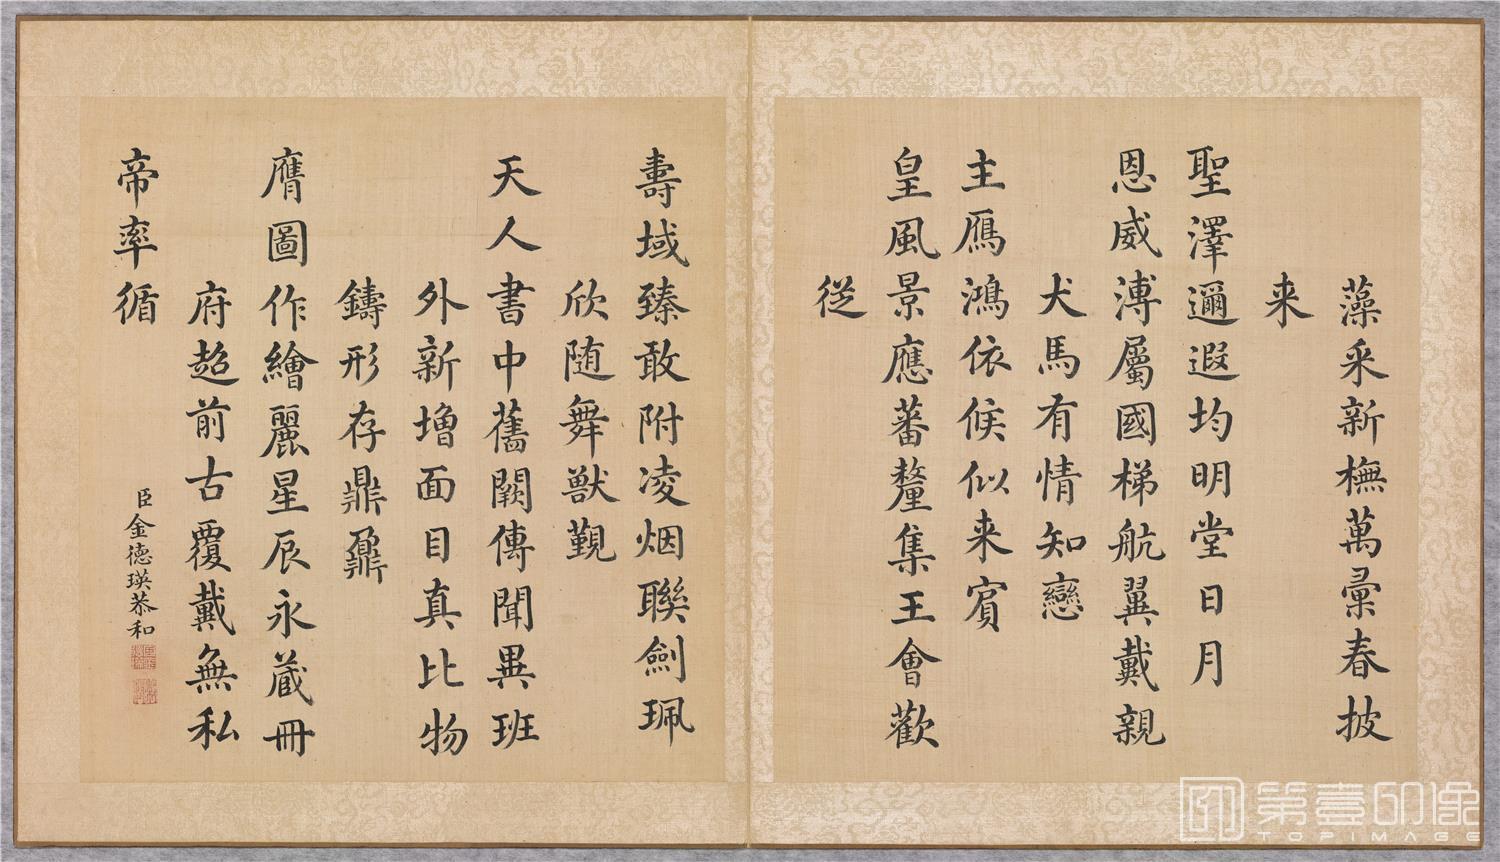 藻采新橅萬彙春披
来
聖澤邇遐均明堂日月
恩威溥屬國梯航翼戴親
犬馬有情知戀
主鴈鴻依候似来賓
皇風景應蕃釐集王會歡
從
壽域臻敢附凌烟聯劍珮
欣随舞獸觐
天人書中舊闕傳聞異班
外新增面目真比物
鑄形存鼎鼐
膺圖作繪麗星辰永蔵冊
府超前古覆戴無私
帝率循
臣金德瑛恭和
第壹印像
TOPIMAGE